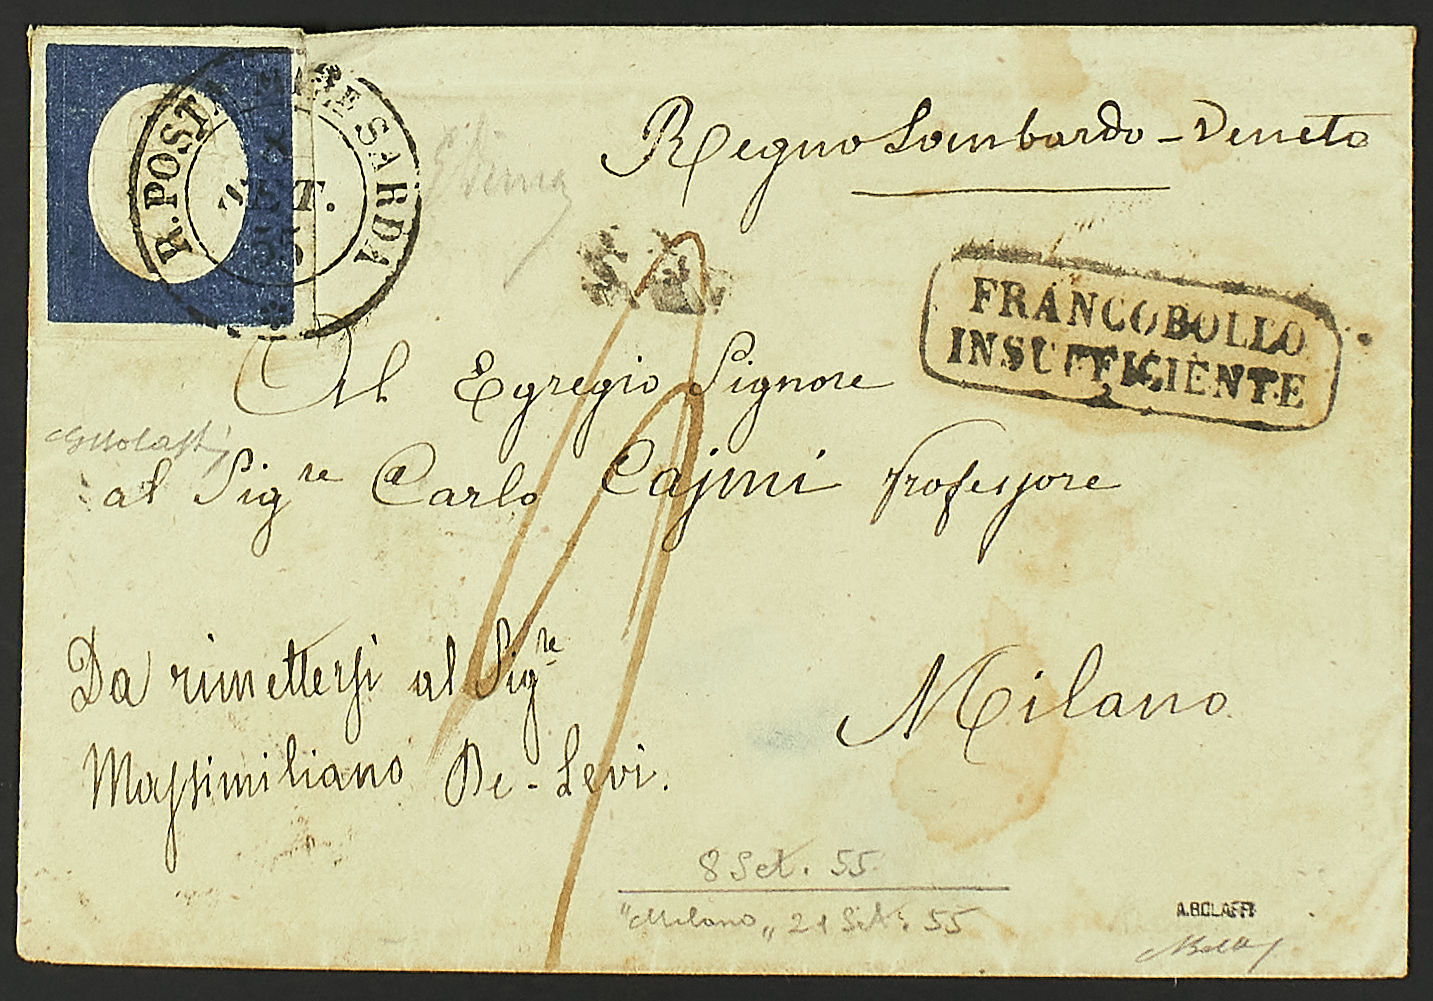 R. POSTA MRE SARDA
SET.
55
Regno Lombardo-Veneto
FRANCOBOLLO
INSUFFICIENTE
Al Egregio Signore
al Sigre Carlo Cajmi Professore
Milano
Da rimettersi al Sigre
Massimiliano De-Levi.
8 Set. 55
"Milano" 21 Set: 55
A.BOLAFFI